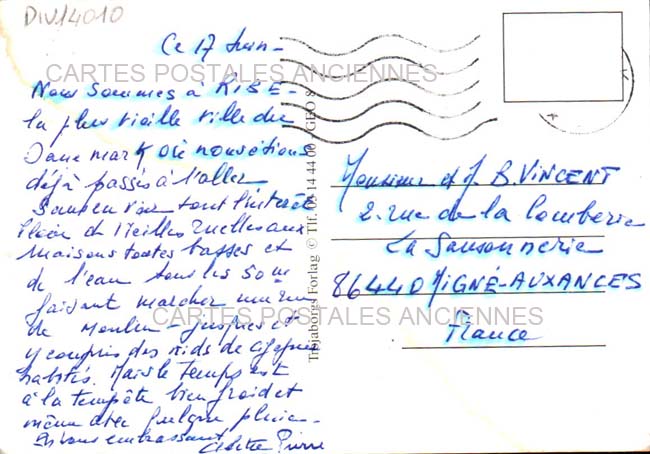 DIV14010
Ce 17 Juin -
CARTES POSTALES ANCIENNES
Nous sommes à RIBE -
la plus vieille ville du
Danemark où nous étions
déjà passés à l'aller
tout
Vieilles ruelles aux
maisons toutes basses et
de l'eau tous les 50 m
faisant marcher une
de moulin - jusques et
y compris des nids de cigognes
habités. Mais le temps est
à la tempête bien froid et
même avec quelque pluie -
embrassant
Pierre
Trojaborgs Forlag © Tlf. 14 44 00 GEO 8
Monsieur et M. B. VINCENT
2. rue de la Comberie
La Sansonnerie
86440 MIGNÉ-AUXANCES
CARTES POSTALES ANCIENNES
France